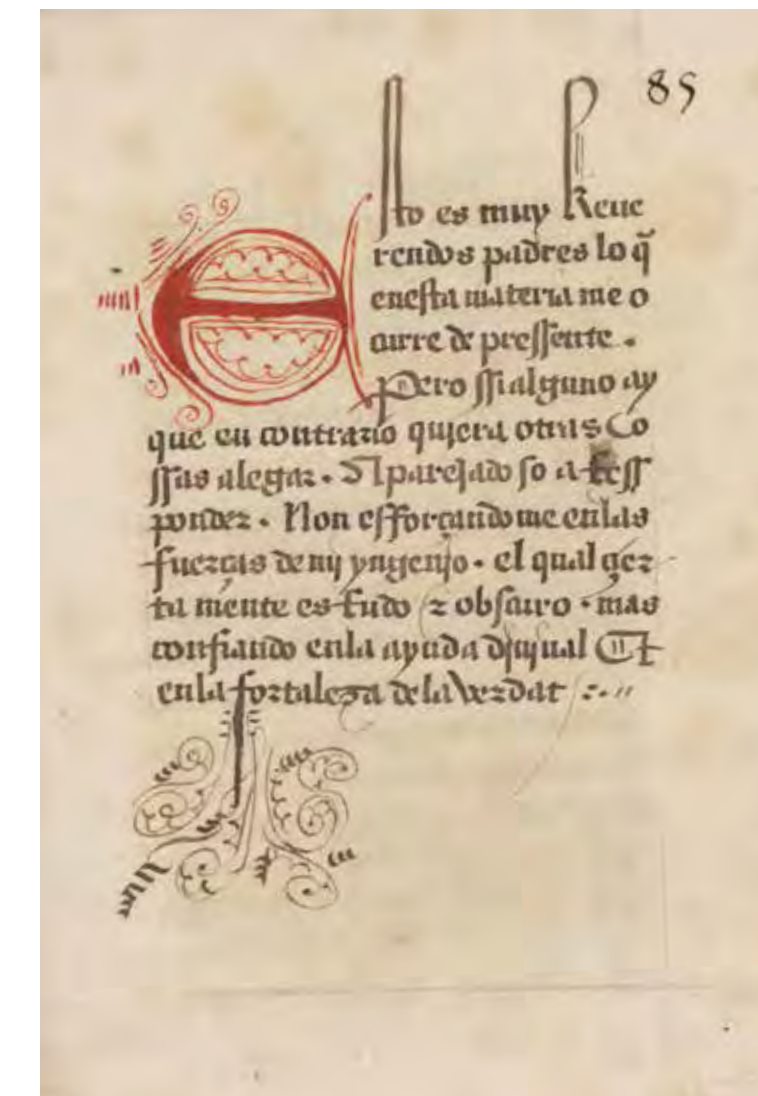 85
Esto es muy Reue
rendos padres lo q̃
enesta materia me o
curre de pressente .
Pero ssi alguno ay
que en contrario quiera otras Co
ssas alegar . Aparejado so a Ress
ponder . Non efforçandome enlas
fuerças de mj yngenjo . el qual çer
ta mente es rudo ⁊ obscuro . mas
confiando enla ayuda diujnal Et
enla fortaleza dela Verdat :.,,